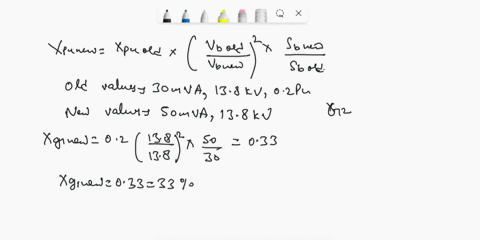 Xpunew = Xpuold × (Vbold / Vbnew)² × Sbnew / Sbold
Old values → 30mVA, 13.8 kV, 0.2Pu
New values → 50mVA, 13.8kV
Xg1new = 0.2 (13.8 / 13.8)² × 50 / 30 = 0.33
Xg1new = 0.33 = 33 %